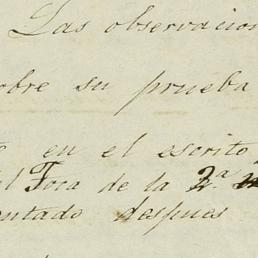 Las observacion
obre su prueba
en el escrito
el Foca de la 2.ª
entado despues